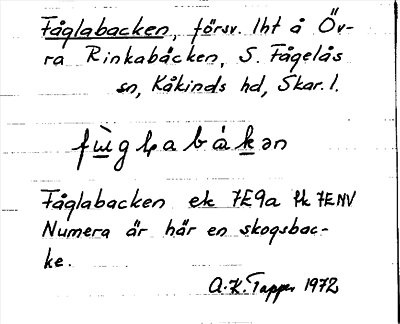 Fåglabacken, försv. lht å Öv-
ra Rinkabäcken, S. Fågelås
sn, Kåkinds hd, Skar. l.
Fåglabacken ek 7E9a fk 7ENV
Numera är här en skogsbac-
ke.
A.K. Tapper 1972